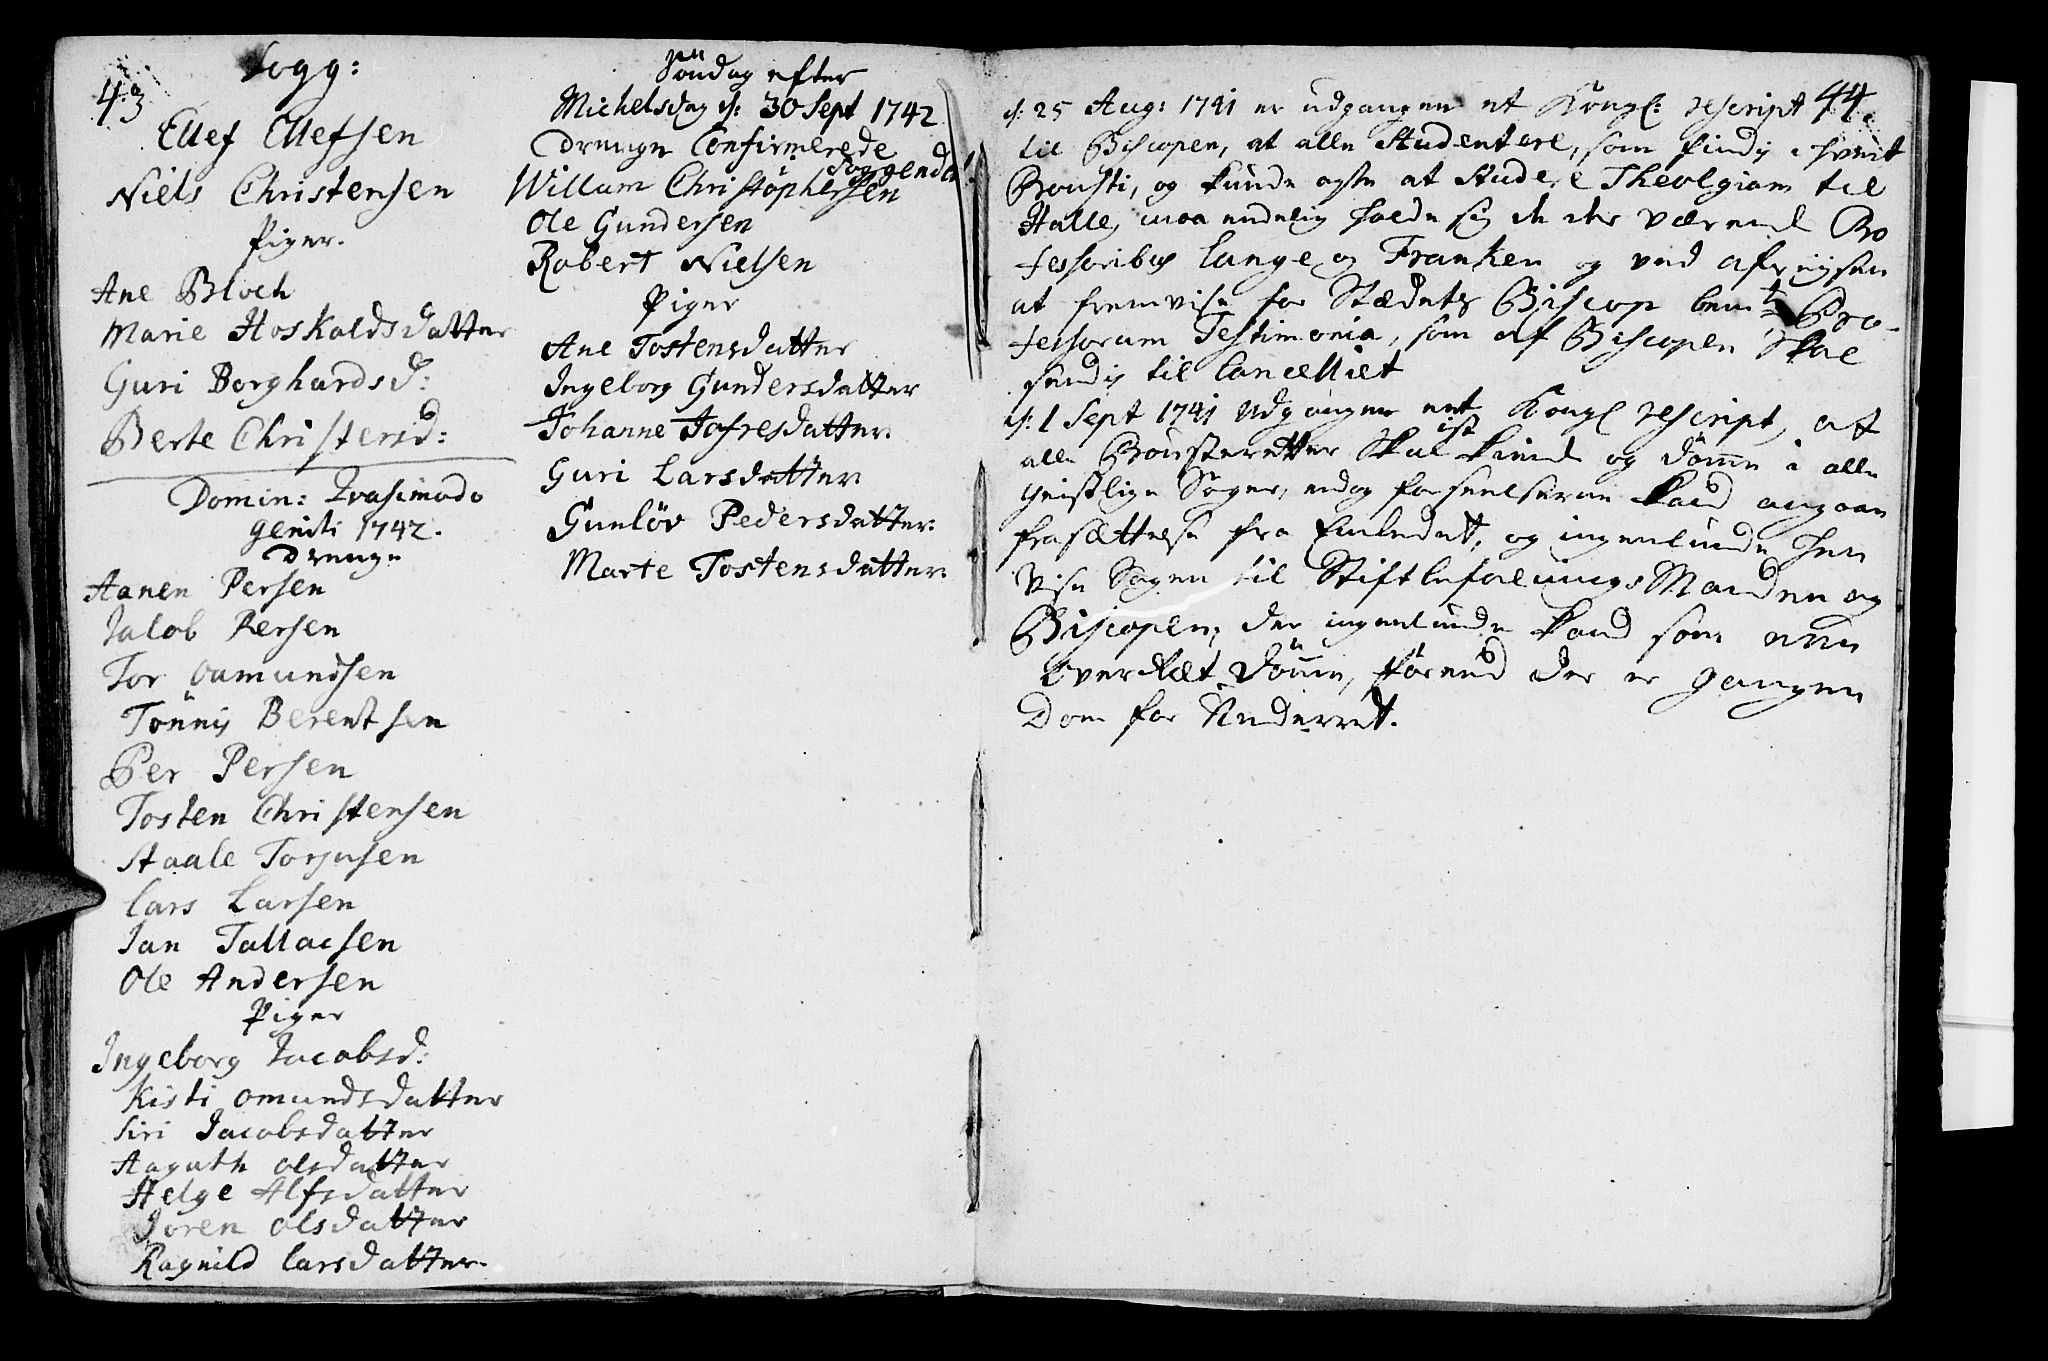 43
Sogg:
Ellef Ellefsen
Niels Christensen
Piger.
Ane Bloch
Marie Hoskoldsdatter
Guri Borghardsd:
Berte Christensd:
Domin: Qvasimodo
geniti 1742.
Drenge
Aanen Persen
Jakob Persen
Tor Oamundsen
Tönnis Berentsen
Per Persen
Tosten Christensen
Staale Torjusen
Lars Larsen
Jan Tallacsen
Ole Andersen
Piger
Ingeborg Jacobsd:
Kisti omundsdatter
Siri Jacobsdatter
Aagath olsdatter
Helge Alfsdatter
Joren olsdatter
Ragnild Larsdatter.
Söndag efter
Michelsdag d: 30 Sept 1742
Drenge Confirmerede
Willum Christophersen
Ole Gundersen
Robert Nielsen
Piger
Ane Tostensdatter
Ingeborg Gundersdatter
Johanne Jofresdatter.
Guri Larsdatter
Gunlöv Pedersdatter.
Marte Tostensdatter.
44.
d: 25 Aug: 1741 er udgangen et Kongl: rescript
til Biscopen, at alle Studentere, som findis i hvert
Provsti, og kunde agte at Studere Theolgiam til
Halle, maa endelig holde sig de der værende Pro
fessoribus Lange og Franken og ved afreysen
at fremvise for Stædets Biscop bemte Pro-
fessorum Testimonia, som af Biscopen skal
sendis til Cancelliet
d: 1 Sept 1741 Udgangen et Kongl rescript, at
alle Provsteretter skal kiende og dömme i alle
geistlige Sager, endog forseelserne kand angaae
frasættelse fra Embedet, og ingenlunde hen
vise Sagen til StiftbefalingsManden og
Biscopen, der ingenlunde kand som een
OverRæt dömme, förend der er gangen
Dom for Underret.